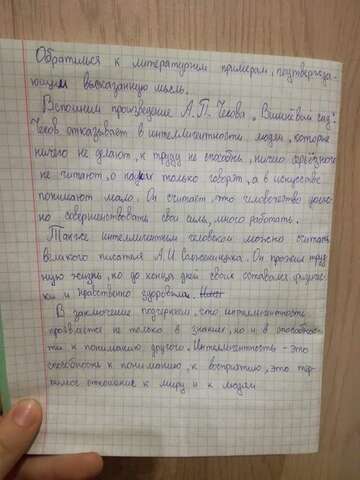 Обратимся к литературным примерам, подтвержда-
ющим высказанную мысль.
Вспомним произведение А.П. Чехова „Вишнёвый сад".
Чехов отказывает в интеллигентности людям, которые
ничего не делают, к труду не способны, ничего серьёзного
не читают, о науках только говорят, а в искусстве
понимают мало. Он считает, что человечество долж-
но совершенствовать свои силы, много работать.
Также интеллигентным человеком можно считать
великого писателя А.И Солженицына. Он прожил труд-
ную жизнь, но до конца дней своих оставался физичес-
ки и нравствено здоровым.
В заключение подчеркнём, что интеллигентность
проявляется не только в знаниях, но и в способнос-
ти к пониманию другого. Интеллигентность - это
способность к пониманию, к восприятию, это тер-
пимое отношение к миру и к людям